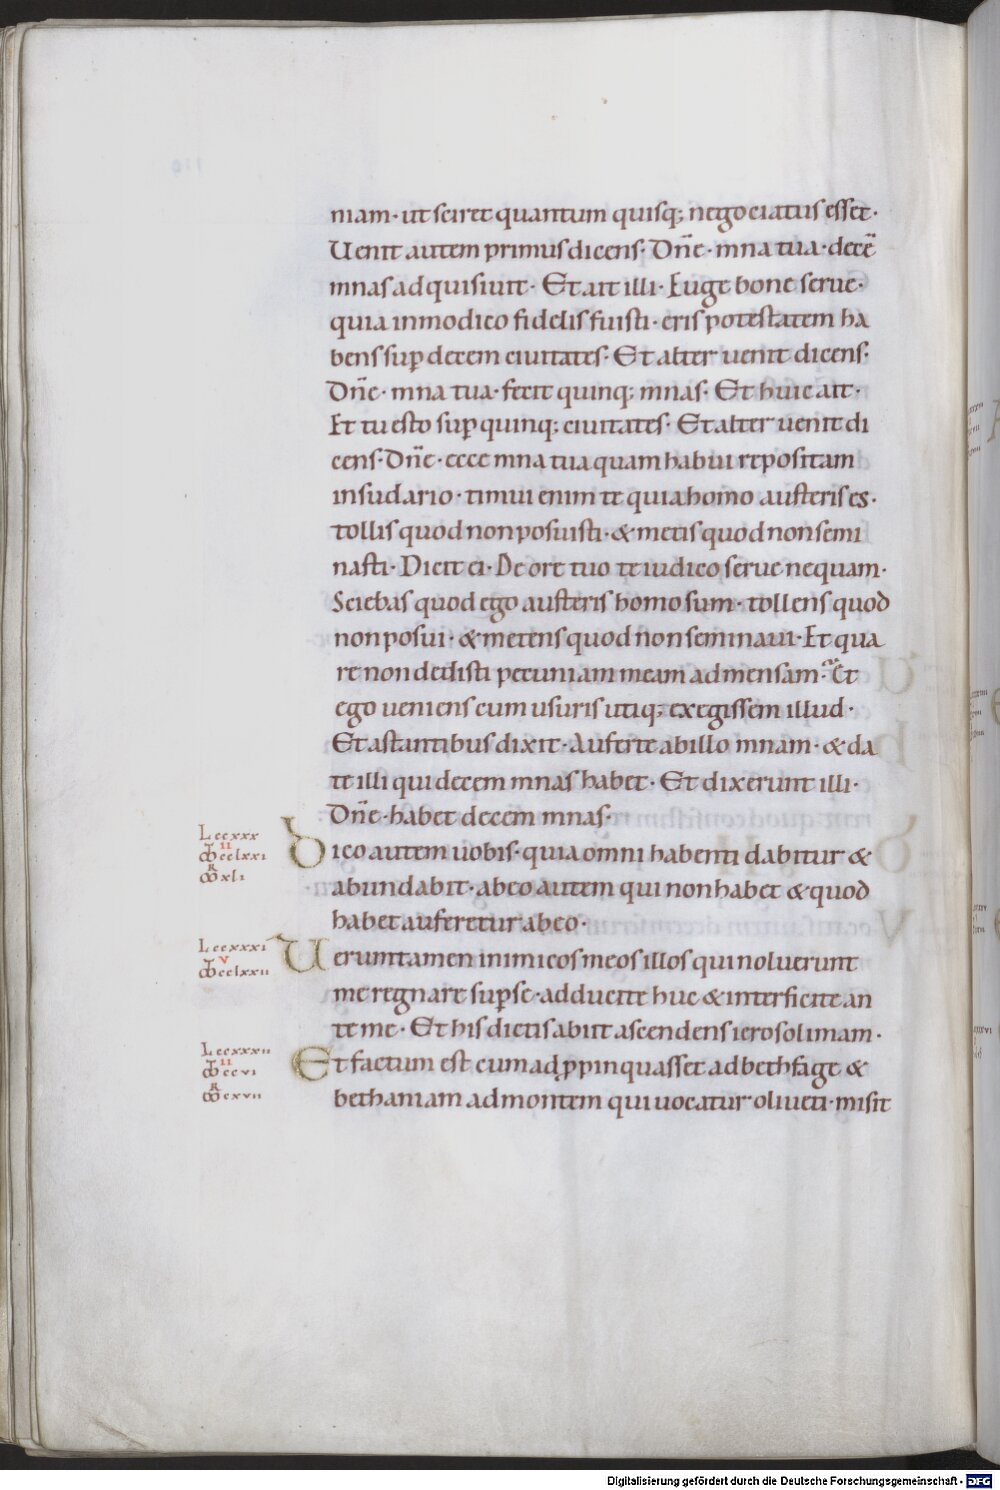 niam· ut sciret quantum quisq; negociatus esset·
Uenit autem primus dicens· Dn̄e· mna tua· decē
mnas adquisiuit· Et ait illi· Euge bone serue·
quia in modico fidelis fuisti· eris potestatem ha
bens sup̱ decem ciuitates· Et alter uenit dicens·
Dn̄e· mna tua· fecit quinq; mnas· Et huic ait·
Et tu esto sup̱ quinq; ciuitates· Et alter uenit di
cens· Dn̄e· ecce mna tua quam habui repositam
in sudario· timui enim te quia homo austeris es·
tollis quod non posuisti· & metis quod non semi
nasti· Dicit ei· De ore tuo te iudico serue nequam·
Sciebas quod ego austeris homo sum· tollens quod
non posui· & metens quod non seminaui· Et qua
re non dedisti pecuniam meam ad mensam· Et
ego ueniens cum usuris utiq; exegissem illud·
Et astantibus dixit· Auferte ab illo mnam· & da
te illi qui decem mnas habet· Et dixerunt illi·
Dn̄e· habet decem mnas·
Lccxxx
II
cclxxi
xli
Dico autem uobis· quia omni habenti dabitur &
abundabit· ab eo autem qui non habet & quod
habet auferetur ab eo·
Lccxxxi
V
cclxxii
Ueruntamen inimicos meos illos qui noluerunt
me regnare sup̱ se· adducite huc & interficite an
te me· Et his dictis abiit ascendens ierosolimam·
Lccxxxii
II
ccvi
cxvii
Et factum est cum ad p̱pinquasset ad bethfage &
bethaniam ad montem qui uocatur oliueti· misit
Digitalisierung gefördert durch die Deutsche Forschungsgemeinschaft - DFG